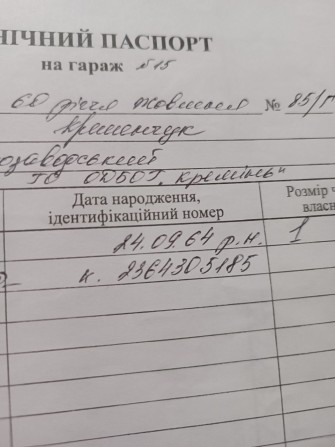 НІЧНИЙ ПАСПОРТ
на гараж №15
60 річчя Жовтня № 85/г
Кременчук
озаводський
ТО ОДБОГ "Кремінь"
Дата народження,
ідентифікаційний номер
Розмір ч
власн
24.09.64 р.н. 1
к. 2364305185